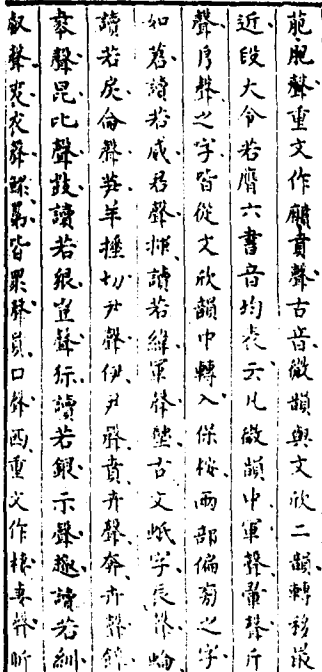 萉肥聲重文作䵯賁聲古音微韻與文欣二韻轉移最
近段大令若膺六書音均表云凡微韻中軍聲暈聲斤
聲月聲之字皆從文欣韻中轉入保桉兩部偏旁之字
如莙讀若威君聲揮讀若緯軍聲蚳古文蚔字辰聲蜦
讀若戾侖聲笋羊捶切尹聲伊尹聲賁卉聲奔卉聲
袞聲昆比聲豤讀若狠豈聲狋讀若銀示聲趣讀若紃
聲衣聲鰥皆眔聲員口聲西重文作棲妻聲昕